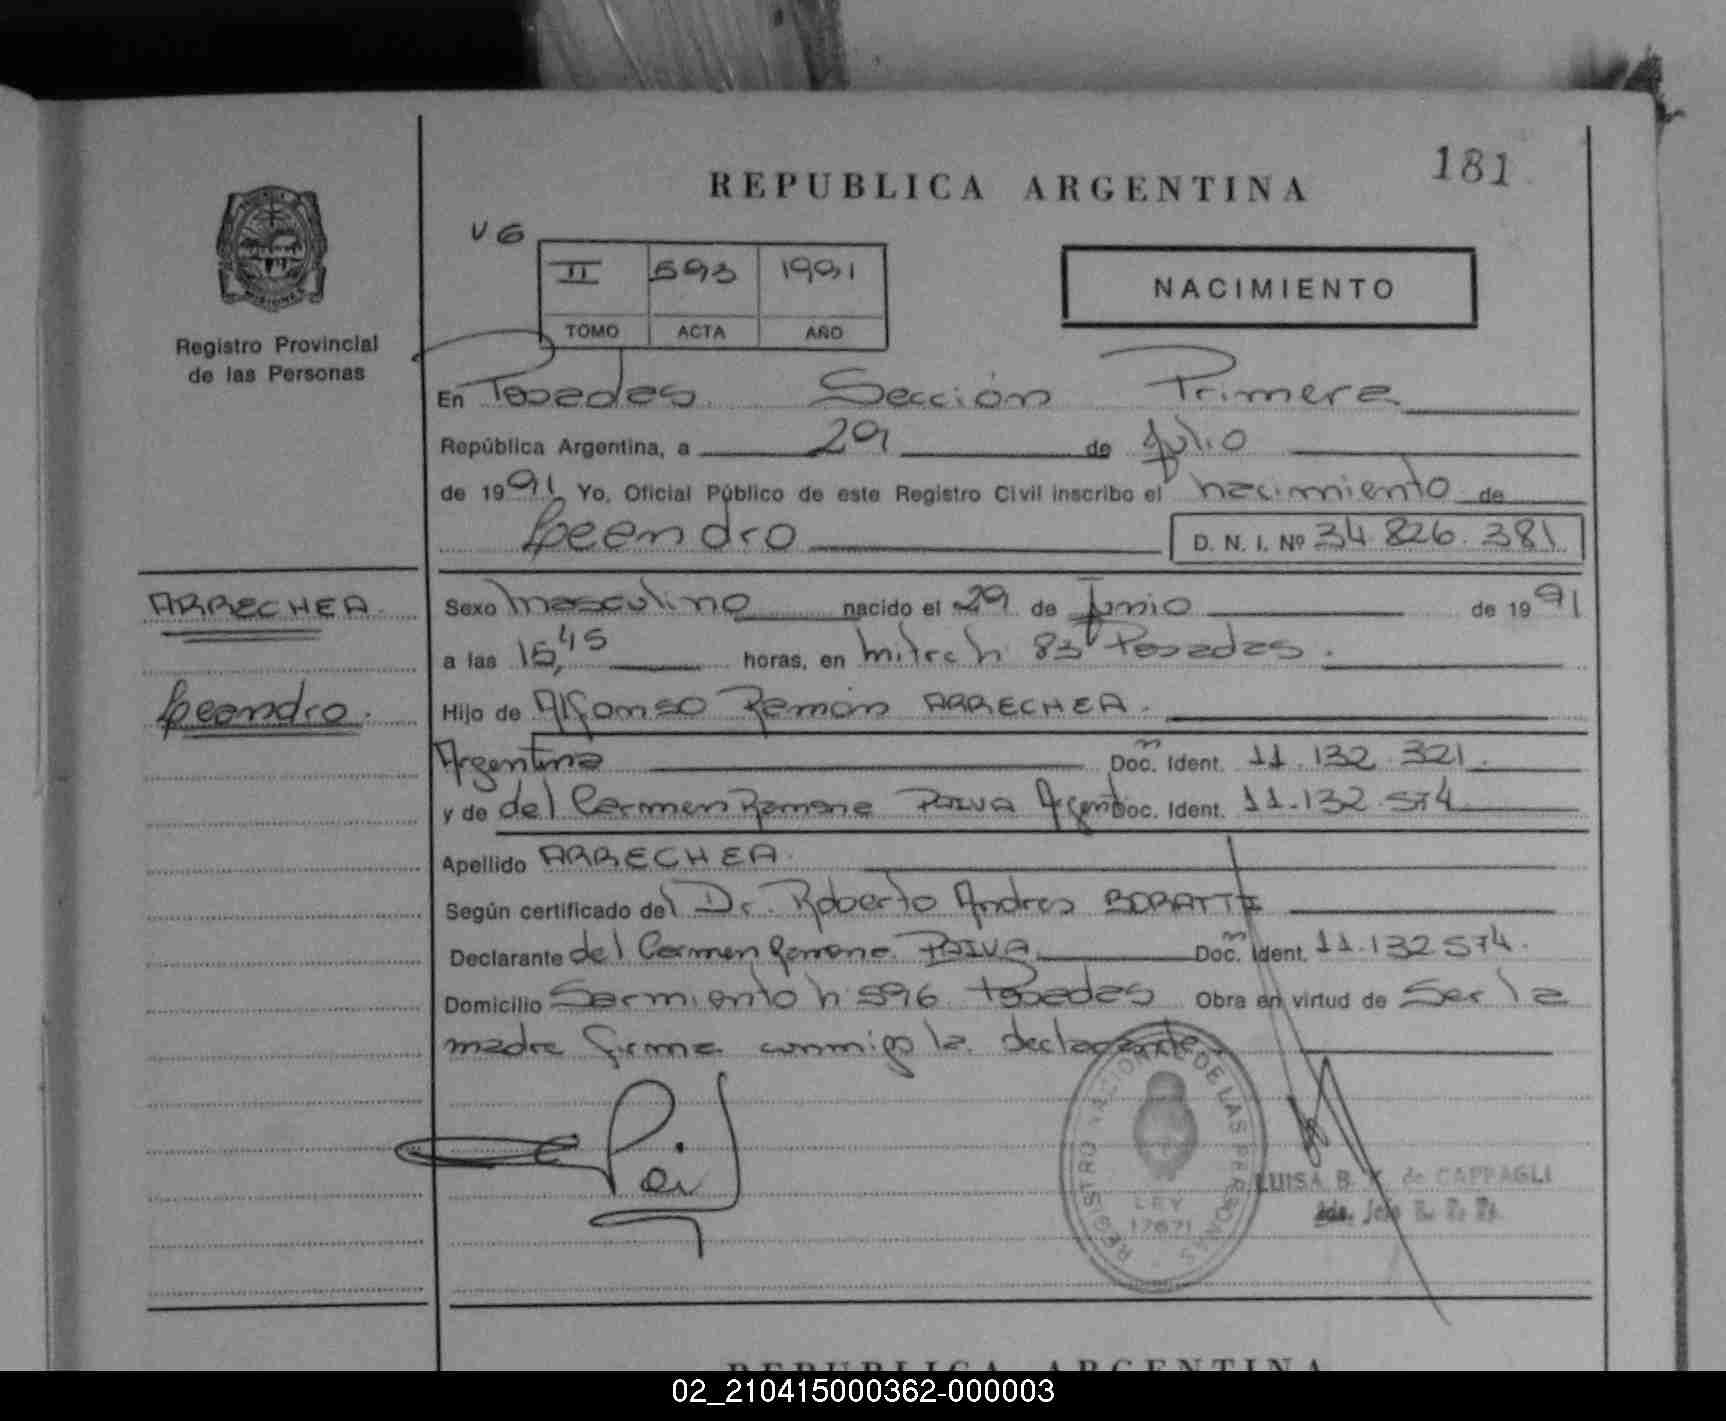 181
REPUBLICA ARGENTINA
V6
II 593 1991
TOMO ACTA AÑO
NACIMIENTO
MISIONES
Registro Provincial
de las Personas
En Posadas Sección Primera
República Argentina, a 29 de Julio
de 1991, Yo, Oficial Público de este Registro Civil inscribo el nacimiento de
Leandro D. N. I. Nº 34.826.381
ARRECHEA.
Sexo masculino nacido el 29 de Junio de 1991
a las 15,45 horas, en mitre h 83 Posadas.
Leandro.
Hijo de Alfonso Ramón ARRECHEA.
Argentina Doc. Ident. 11.132.321.
y de del Carmen Ramona PAIVA Argent Doc. Ident. 11.132.574
Apellido ARRECHEA.
Según certificado del Dr. Roberto Andres BORATTI
Declarante del Carmen Ramona PAIVA Doc. Ident. 11.132.574.
Domicilio Sarmiento h 596 Posadas Obra en virtud de Ser la
madre firma conmigo la declarante.
REGISTRO NACIONAL DE LAS PERSONAS
LEY
17671
LUISA B. de CAPPAGLI
REPUBLICA ARGENTINA
02_210415000362-000003